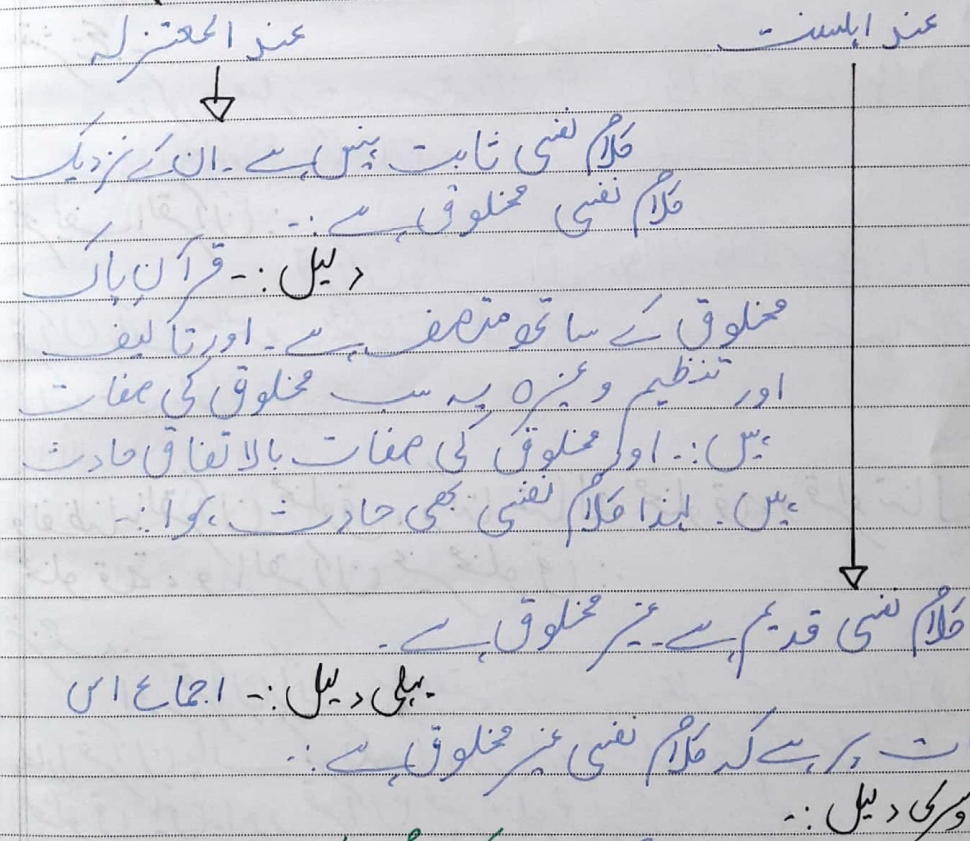 عند اہلسنت
عند المعتزلہ
کلام نفسی ثابت نہیں ہے۔ ان کے نزدیک
کلام نفسی مخلوق ہے :۔
دلیل :۔ قرآن پاک
مخلوق کے ساتھ متصف ہے۔ اور تالیف
اور تنظیم وغیرہ یہ سب مخلوق کی صفات
ہیں :۔ اور مخلوق کی صفات بالاتفاق حادث
ہیں۔ لہذا کلام نفسی بھی حادث ہوا :۔
کلام نفسی قدیم ہے۔ غیر مخلوق ہے۔
پہلی دلیل :۔ اجماع اس
ات پر ہے کہ کلام نفسی غیر مخلوق ہے :۔
وسری دلیل :۔